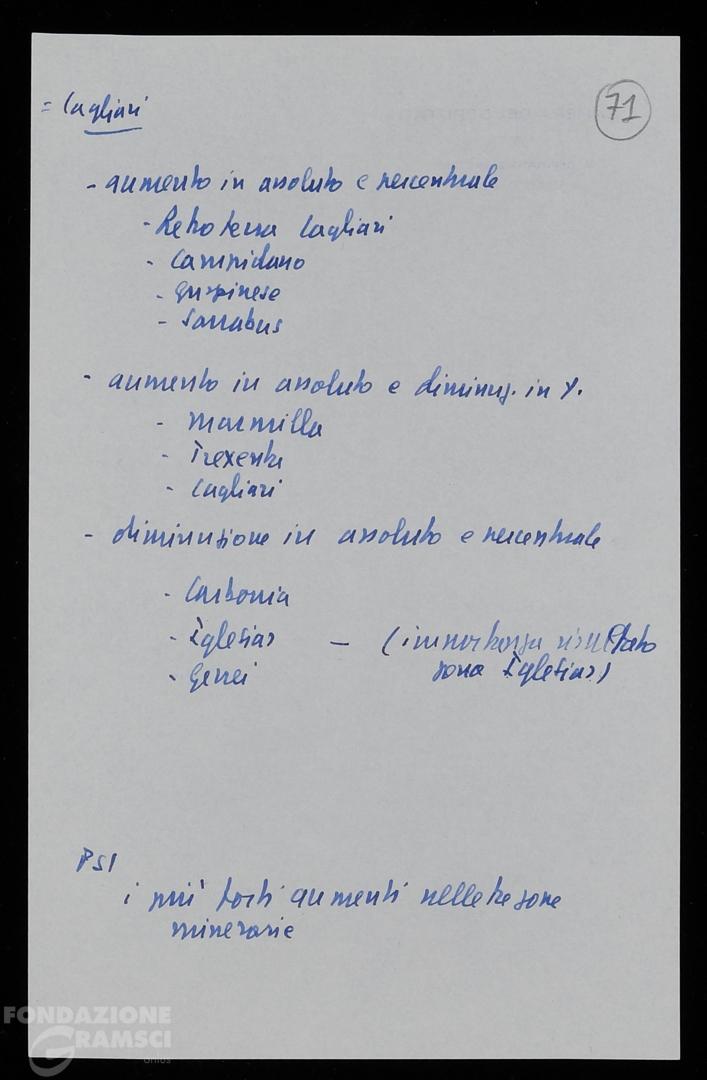 = Cagliari
71
- aumento in assoluto e percentuale
- Retroterra Cagliari
- Campidano
- Guspinese
- Sarrabus
- aumento in assoluto e diminuz. in %.
- Marmilla
- Trexenta
- Cagliari
- diminuzione in assoluto e percentuale
- Carbonia
- Iglesias — (importanza risultato
- Gerrei zona Iglesias)
PSI
i più forti aumenti nelle tre zone
minerarie
FONDAZIONE
GRAMSCI
onlus